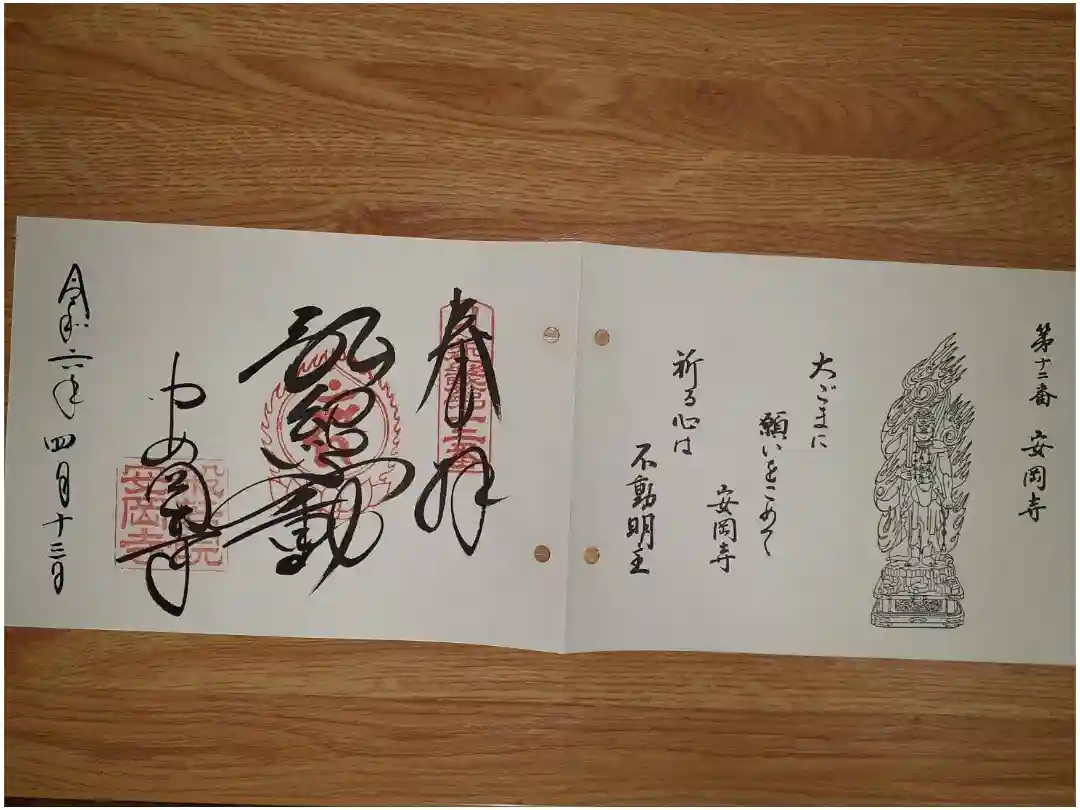 第十二番 安岡寺
大ごまに
願いをこめて
安岡寺
祈る心は
不動明王
奉拝
動
安岡寺
令和六年 四月十三日